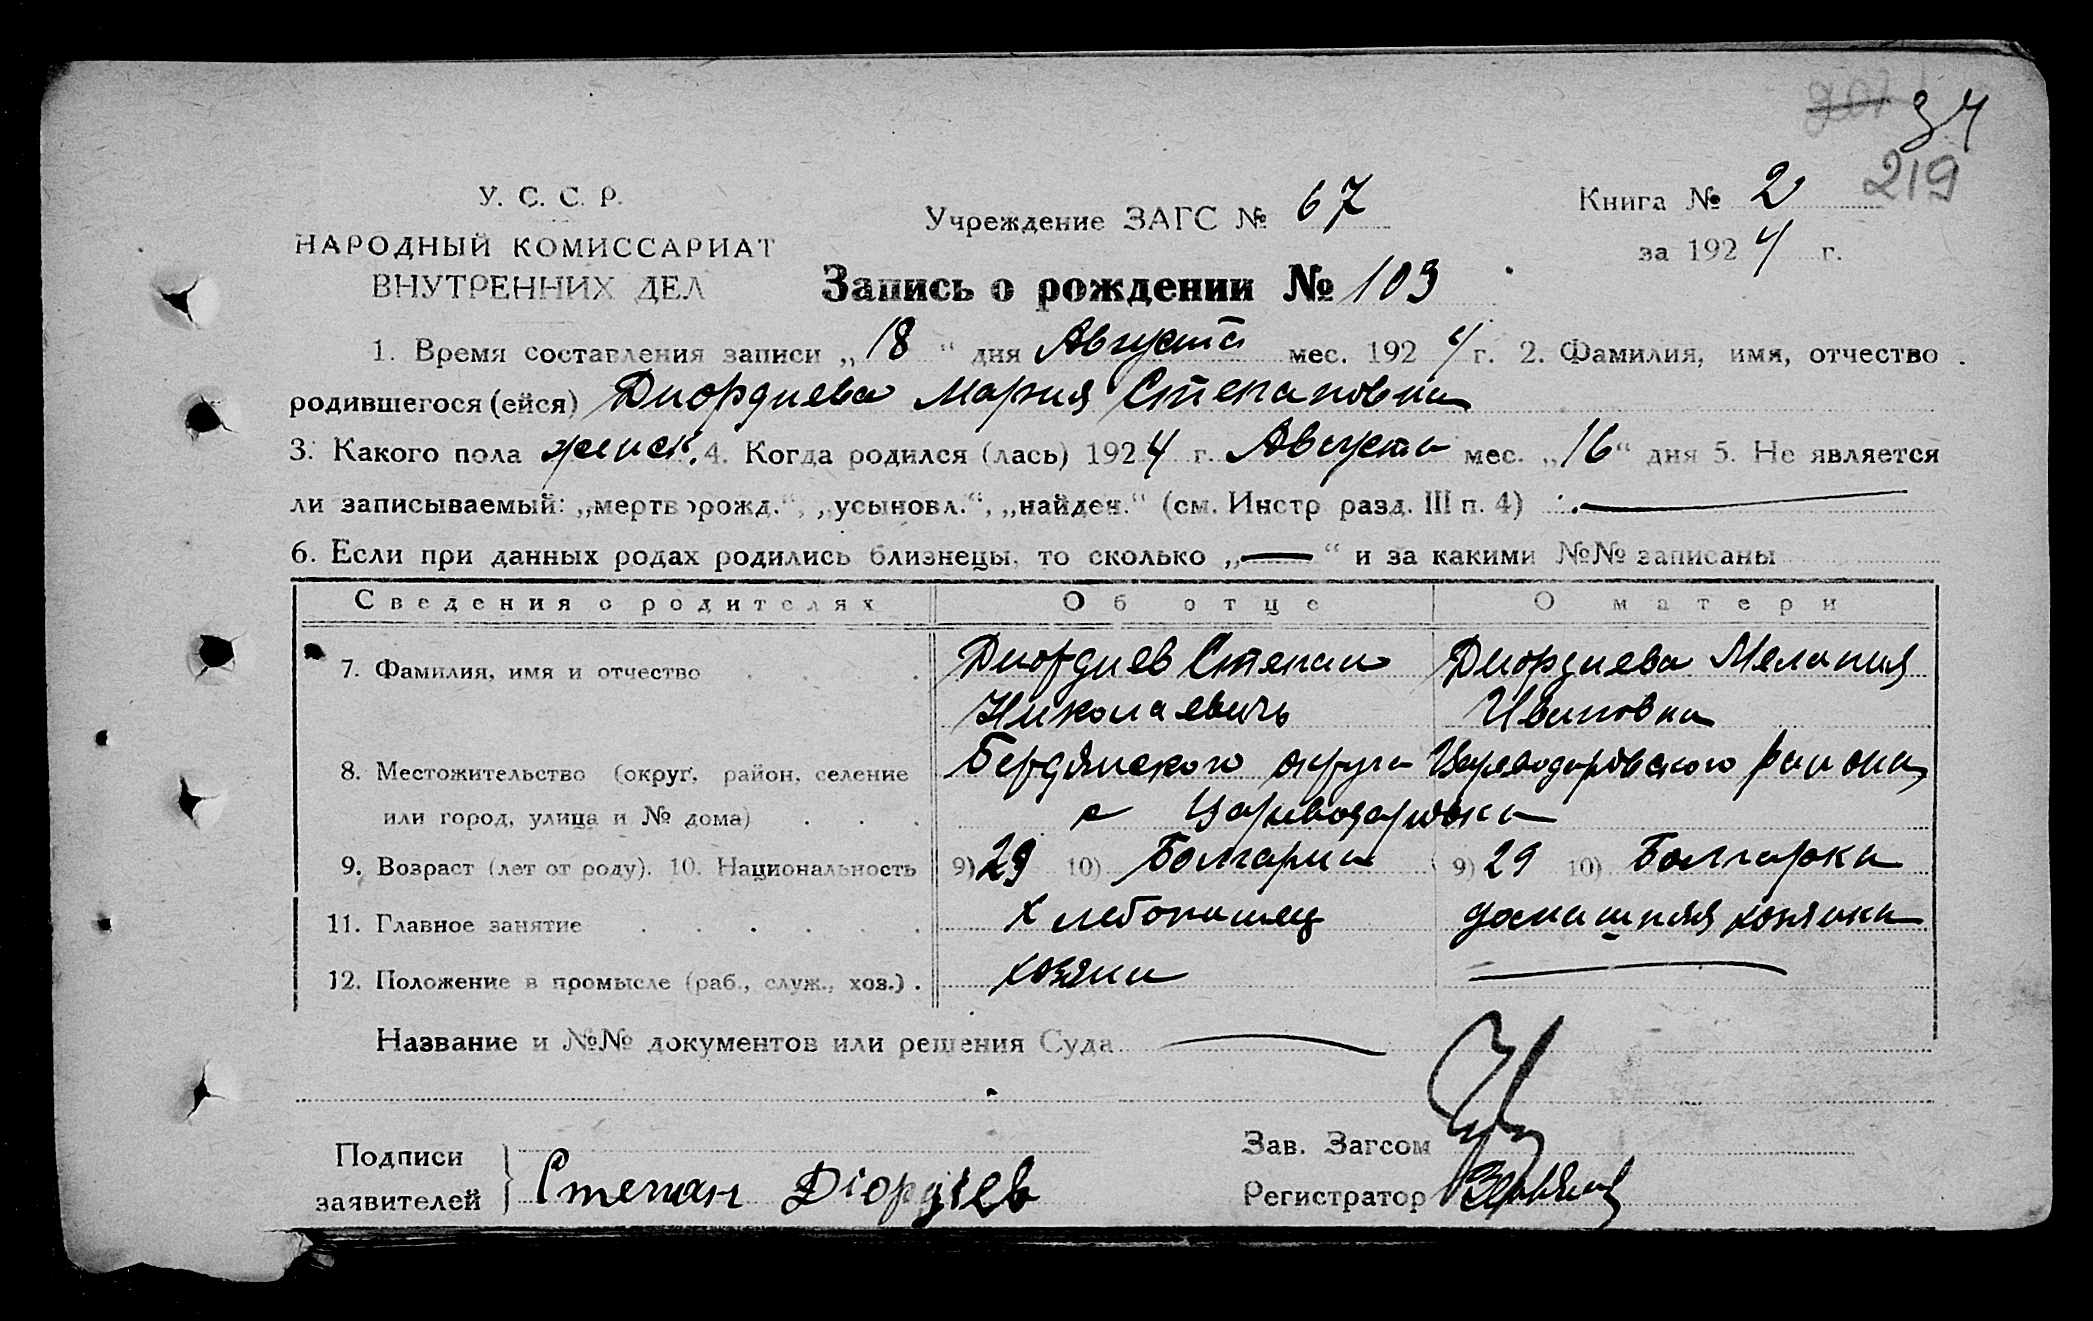 207 34
219
У. С. С. Р.
НАРОДНЫЙ КОМИССАРИАТ
ВНУТРЕННИХ ДЕЛ
Учреждение ЗАГС № 67
Книга № 2
за 1924 г.
Запись о рождении № 103
1. Время составления записи „18“ дня Августа мес. 1924 г. 2. Фамилия, имя, отчество
родившегося (ейся) Диордиева Мария Степановна
3. Какого пола женск. 4. Когда родился (лась) 1924 г. Августа мес. „16“ дня 5. Не является
ли записываемый: „мертворожд.“, „усыновл.“, „найден.“ (см. Инстр разд. III п. 4) —
6. Если при данных родах родились близнецы, то сколько „—“ и за какими №№ записаны
Сведения о родителях Об отце О матери
7. Фамилия, имя и отчество Диордиев Степан Диордиева Мелания
Николаевичь Ивановна
8. Местожительство (округ, район, селение Бердянского округа Цареводаровского района,
или город, улица и № дома) с Цареводаровка
9. Возраст (лет от роду). 10. Национальность 9) 29 10) Болгарин 9) 29 10) Болгарка
11. Главное занятие Хлебопашец домашняя хозяйка
12. Положение в промысле (раб., служ., хоз.) хозяин —
Название и №№ документов или решения Суда —
Подписи
заявителей
Степан Діордіев
Зав. Загсом
Регистратор